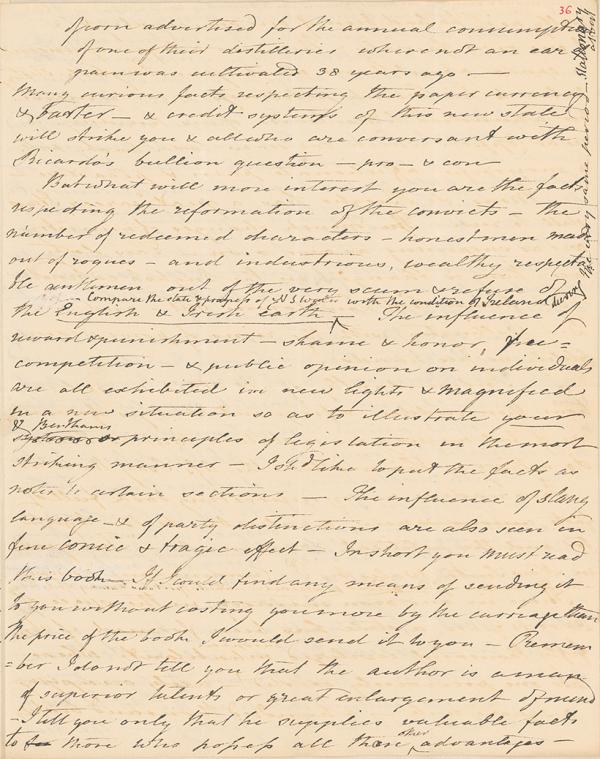 36
of corn advertised for the annual consumption
of one of their distilleries where not an ear
grain was cultivated 38 years ago —
Many curious facts respecting the paper currency
& barter — & credit systems of this new state
will strike you & all who are conversant with
Ricardo's bullion question — pro — & con
But what will more interest you are the facts
respecting the reformation of the convicts — the
number of redeemed characters — honest men made
out of rogues — and industrious, wealthy respecta
ble gentlemen out of the very scum & refuse of
— Compare the state & progress of N S Wales with the condition of Ireland during the very same period — Stationary
the English & Irish earth — The influence of
reward & punishment — shame & honor, free =
competition — & public opinion on individuals
are all exhibited in new lights & magnified
in a new situation so as to illustrate your
& Benthams
principles of legislation in the most
striking manner — I shd like to put the facts as
notes to certain sections — The influence of slang
language — & of party distinctions are also seen in
fine comic & tragic effect — In short you must read
this book — If I could find any means of sending it
to you without costing you more by the carriage than
the price of the book I would send it to you — Remem
=ber I do not tell you that the author is a man
of superior talents or great enlargement of mind
— I tell you only that he supplies valuable facts
to those who possess all these other advantages —